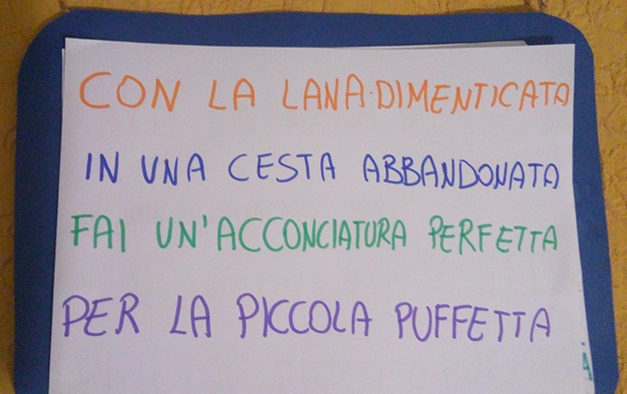 CON LA LANA DIMENTICATA
IN UNA CESTA ABBANDONATA
FAI UN'ACCONCIATURA PERFETTA
PER LA PICCOLA PUFFETTA